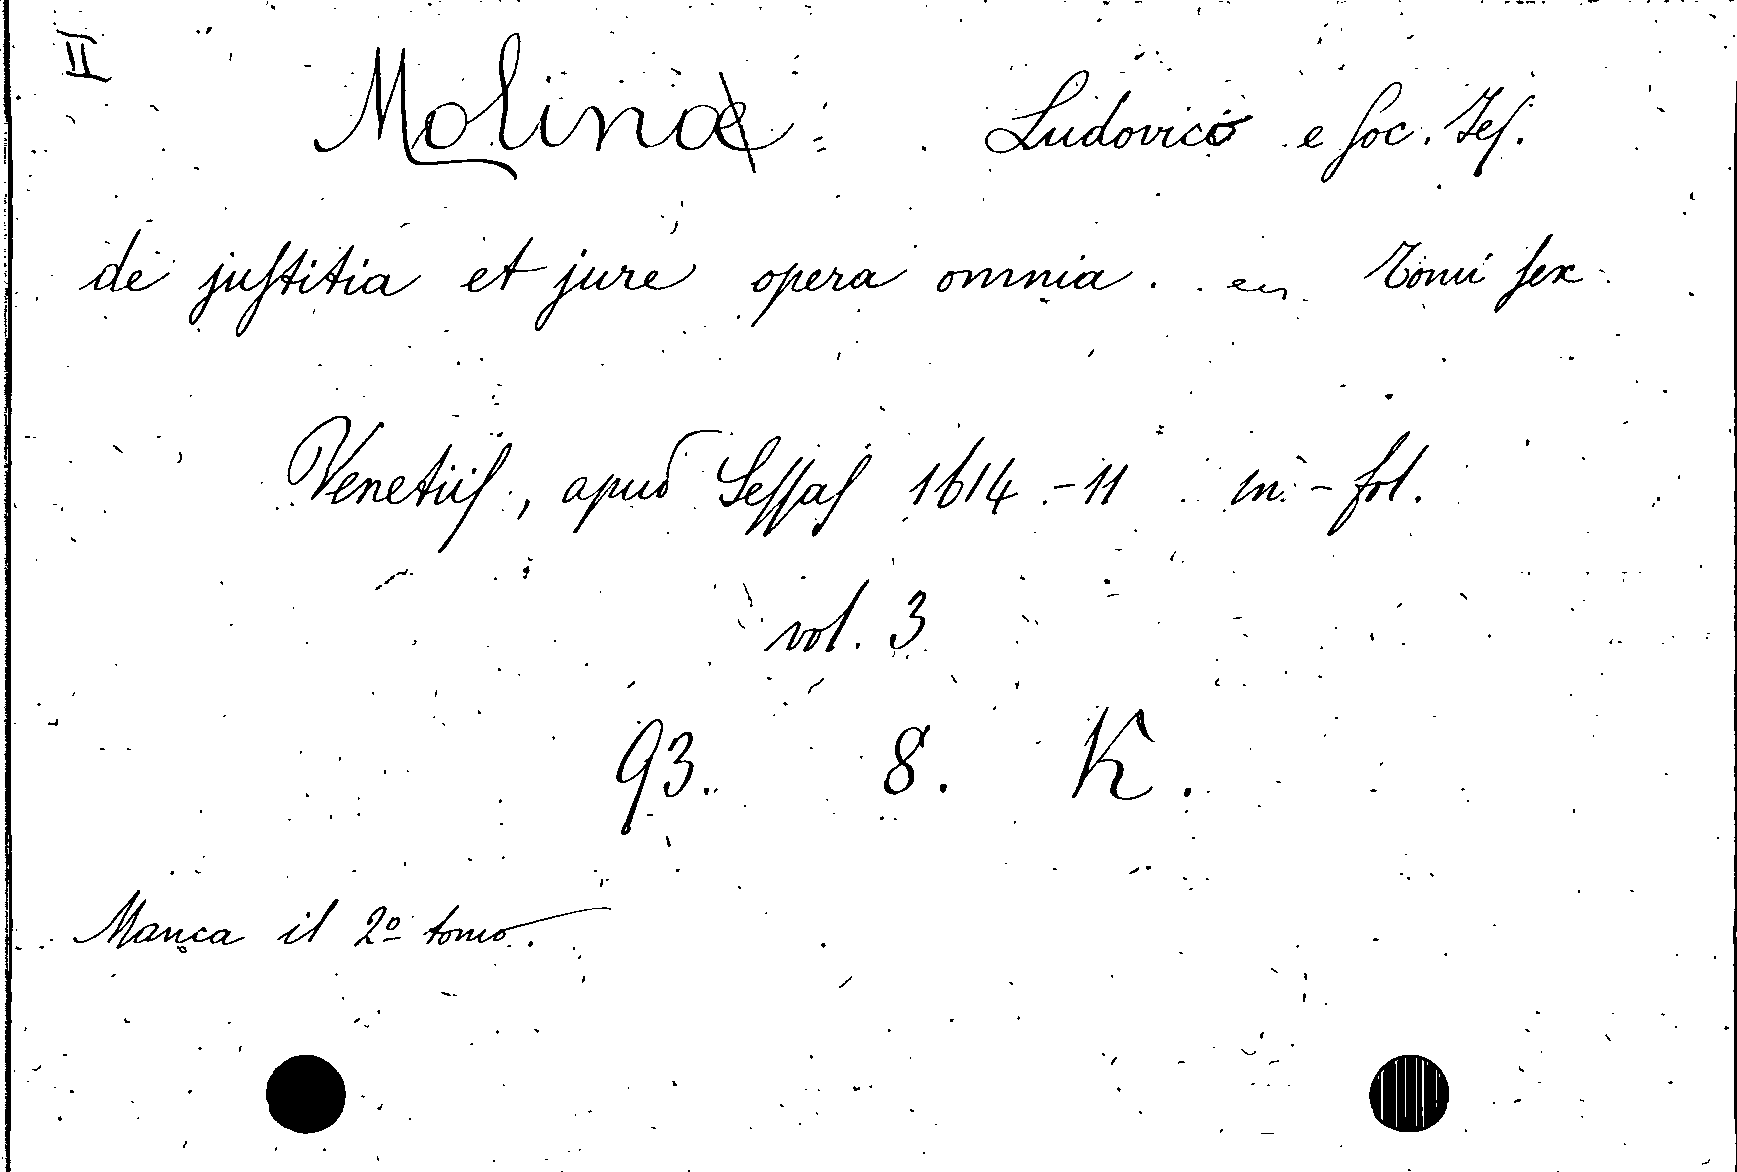 II
Molina Ludovico e Soc. Jes.
de justitia et jure opera omnia. Tomi sex
Venetiis, apud Sessas 1614-11 in-fol.
vol. 3
93. 8. K.
Manca il 2º tomo.